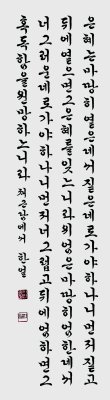 은혜는마땅히옅은데서짙은데로가야하나니먼저짙고
뒤에옅으면그은혜를잊느니라위엄은마땅히엄한데서
너그러운데로가야하나니먼저너그럽고뒤에엄하면그
혹독함을원망하느니라 채근담에서